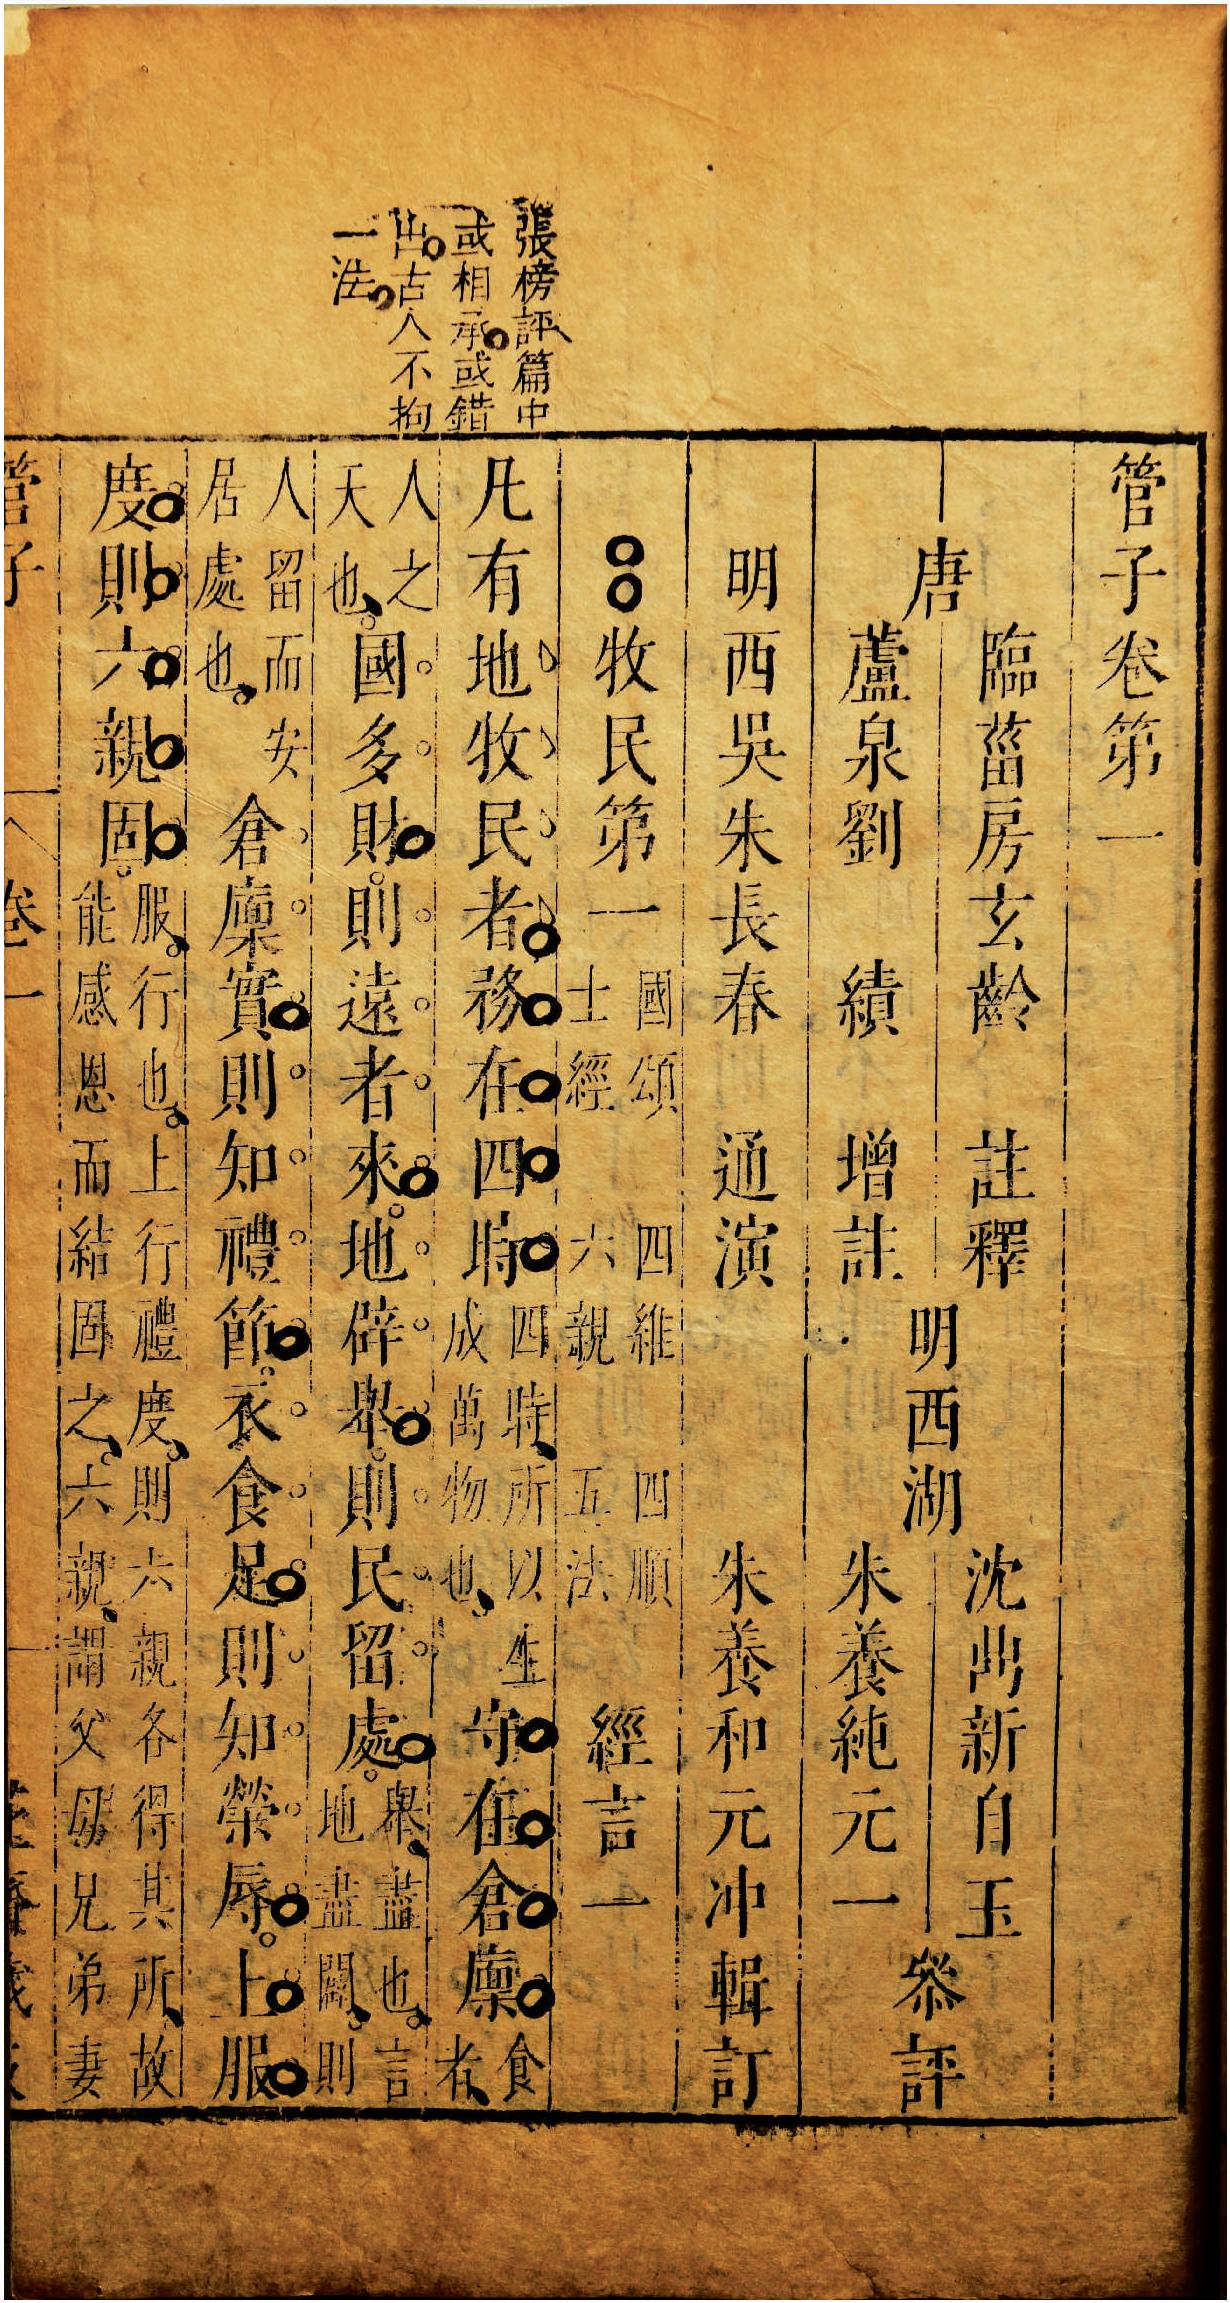 張榜評篇中
或相承或錯
出古人不拘
一法
管子卷第一
唐
臨菑房玄齡 註釋
蘆泉劉 績 增註
明西湖
沈鼎新自玉
朱養純元一
叅評
明西吳朱長春 通演 朱養和元冲輯訂
牧民第一 國頌 四維 四順 經言一
士經 六親 五法
凡有地牧民者務在四時 四時所以生
成萬物也 守在倉廩 食
者
人之
天也 國多財則遠者來地辟舉則民留處 舉盡也言
地盡闢則
人留而安
居處也 倉廩實則知禮節衣食足則知榮辱上服
度則六親固 服行也上行禮度則六親各得其所故
能感恩而結固之六親謂父母兄弟妻
管子 卷一